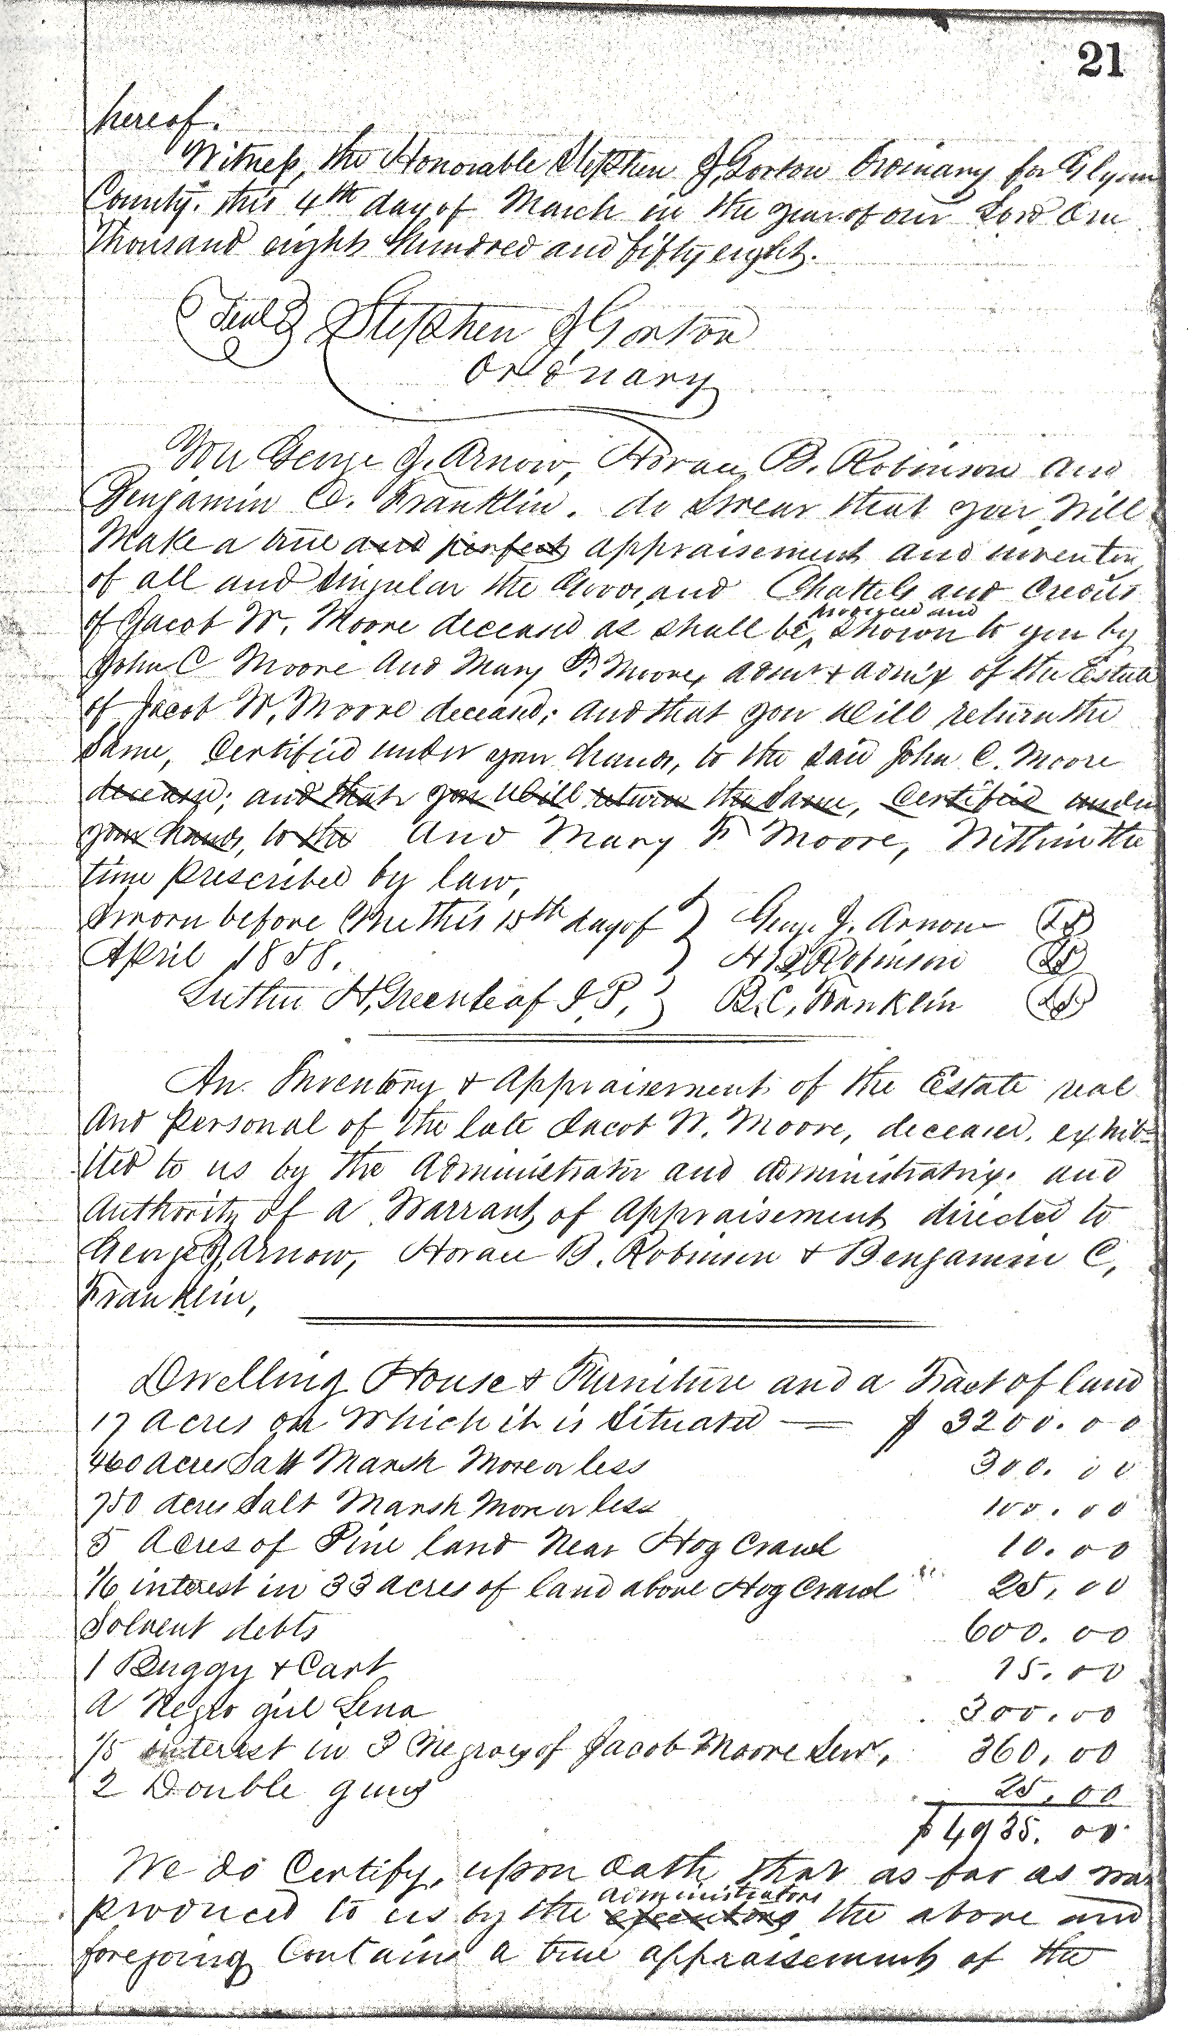 21
hereof.
Witness, the Honorable Stephen J. Gorton Ordinary for Glynn
County. this 4th day of March in the year of our Lord One
Thousand eight hundred and fifty eight.
Seal Stephen J Gorton
Ordinary
You George J. Arnow, Horace B. Robinson and
Benjamin C. Franklin. do Swear that you Will
Make a true and perfect appraisement and inventory
of all and singular the Goods and Chattels and Credits
produced and
of Jacob W. Moore deceased as shall be, shown to you by
John C Moore And Mary F. Moore, admr & admix of the Estate
of Jacob W. Moore deceased; and that you Will return the
Same, Certified under your hands, to the said John C. Moore
deceased; and that you Will return the Same, Certified under
your hands, to the And Mary F Moore, Within the
time prescribed by law,
Sworn before Me this 15th day of } George J. Arnow LS
April 1858. } H B Robinson LS
Luther H. Greenleaf J.P. } B.C. Franklin LS
An Inventory & Appraisement of the Estate real
And personal of the late Jacob W. Moore, deceased, exhib-
ited to us by the Administrator and administratrix. and
Authority of a Warrant of Appraisement directed to
George J. Arnow, Horace B. Robinson & Benjamin C,
Franklin,
Dwelling House & Furniture and a Tract of land
17 acres on Which it is Situated — $ 3200.00
460 acres Salt Marsh More or less 300.00
750 acres Salt Marsh More or less 100.00
5 Acres of Pine land Near Hog Crawl 10.00
1/6 interest in 33 acres of land above Hog Crawl 25,00
Solvent debts 600.00
1 Buggy & Cart 15.00
A Negro girl Lena 300.00
1/5 interest in 3 Negroes of Jacob Moore Senr, 360,00
2 Double guns 25,00
$4935.00
We do Certify, upon Oath, that as far as was
administrators
produced to us by the executors the above and
foregoing Contains a true appraisement of the